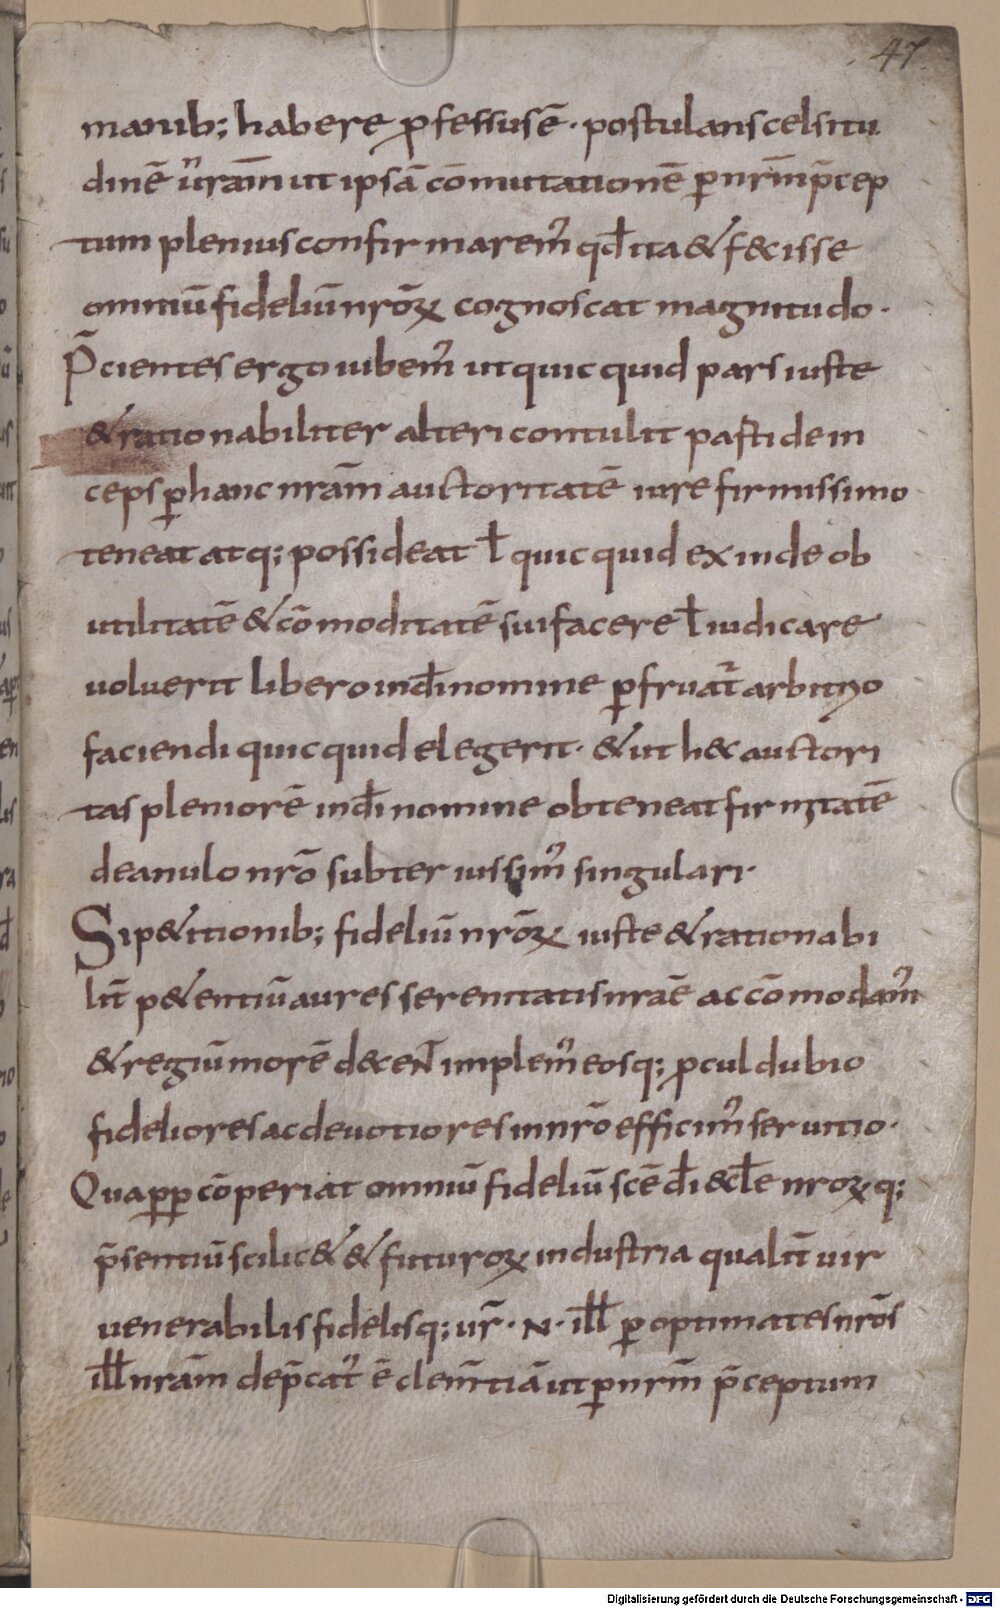 47
manib; habere ꝓfessus ē · postulans celsitu
dinē ur̄am ut ipsā cōmutationē ꝑ nr̄m p̄cep
tum plenius confirmarem᷒ qđ ita & f&isse
omniū fideliū nrōꝝ cognoscat magnitudo ·
P̄cientes ergo iubem᷒ ut quicquid pars iuste
& rationabiliter alteri contulit parti dein
ceps ꝑ hanc nrām auctoritatē iure firmissimo
teneat atq; possideat ł quicquid exinde ob
utilitatē & cōmoditatē sui facere ł iudicare
voluerit libero in đi nomine ꝑfruat᷑ arbitrio
faciendi quicquid elegerit · & ut h&c auctori
tas pleniorē in đi nomine obteneat firmitatē
de anulo nrō subter iussim᷒ singulari ·
Si p&itionib; fideliū nrōꝝ iuste & rationabi
lit̄ p&entiū aures serenitatis nrae accōmodam᷒
& regiū morē decent̄ implem᷒ eosq; ꝓcul dubio
fideliores ac devotiores in nrō efficim᷒ servitio ·
Quaꝑꝑ cōperiat omniū fideliū scē đi eccłe nroꝝq;
p̄sentiū scilic& & futuroꝝ industria qualit̄ vir
venerabilis fidelisq; ur̄ · N · iłł ꝑ optimates nrōs
iłł nrām dep̄cat᷒ ē clem̄tiā ut ꝑ nrm̄ p̄ceptum
Digitalisierung gefördert durch die Deutsche Forschungsgemeinschaft - DFG